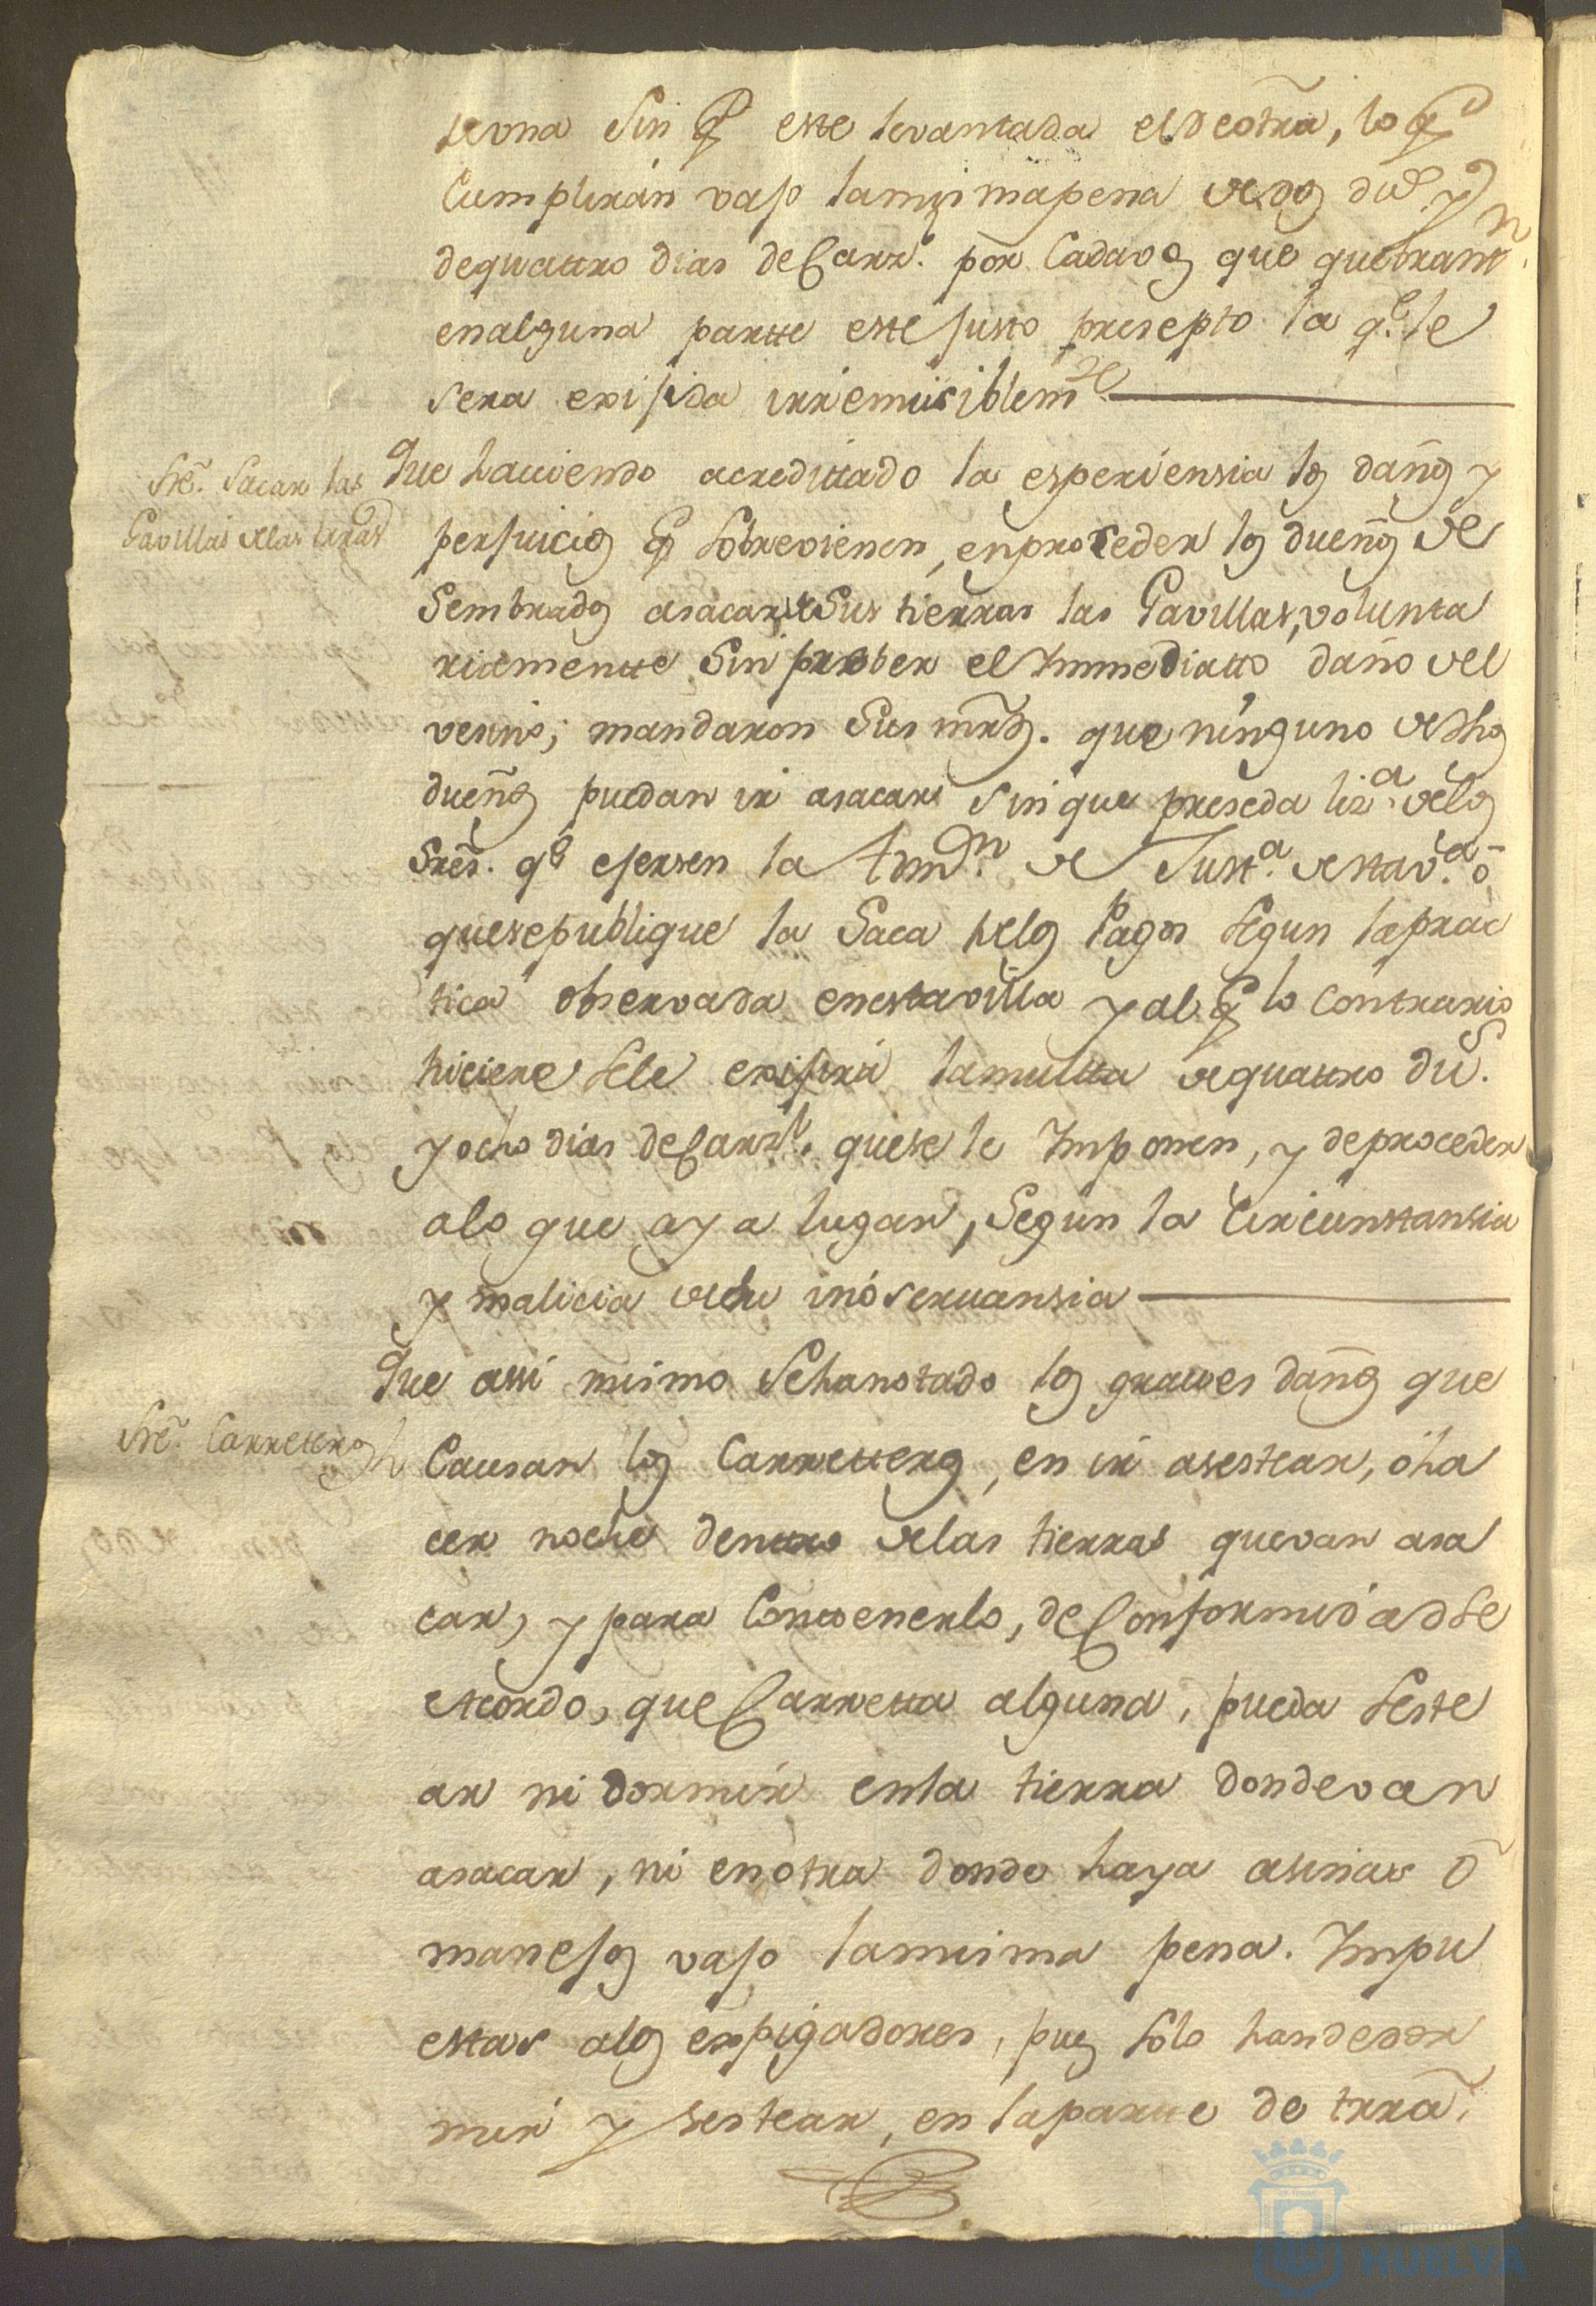 de una sin q̃ este levantada el de otra, lo q̃
Cumplirán vajo la misma pena de dos du.s y
de quattro dias de Carz.l por Cada vez que quebrant.n
en alguna partte este justo presepto la q.e le
sera exijida irremisiblem.te
Sre. Sacar las
Gavillas de las tierras
Que haviendo acredittado la esperiensia los daños y
perjuicios q̃ sobrevienen, en proceder los dueños de
Sembrados a sacar de sus tierras las Gavillas, volunta
riamentte sin preber el Ymmediatto daño del
vesino; mandaron Sus mrds. que ninguno de dhos
dueños puedan ir a sacar sin que preseda liz.a de los
Sres. q.e ejersen la Admn.n de Justt.a de esta v.a ó
que se publique la Saca de los Pagos segun la prac
tica observada en esta villa y al q̃ lo Contrario
hiciere se le exijirá la multta de quattro du.s
y ocho dias de Carz.l que se le Ymponen, y de proceder
a lo que aya lugar, Segun la Circunstansia
y malicia de su inóservansia
Sre. Carreteros
Que assi mismo se ha notado los graves daños que
Causan los Carretteros, en ir a sestear, ó ha
cer noche denttro de las tierras que van a sa
car, y para Contenerlo, de Conformidad se
Acordo, que Carretta alguna, pueda seste
ar ni dormir en la tierra donde van
a sacar, ni en otra donde haya asinas ó
manojos vajo la misma pena. Ympu
estas a los espigadores, pues solo han de dor
mir y sestear, en la partte de trra.
Ayuntamiento de
HUELVA